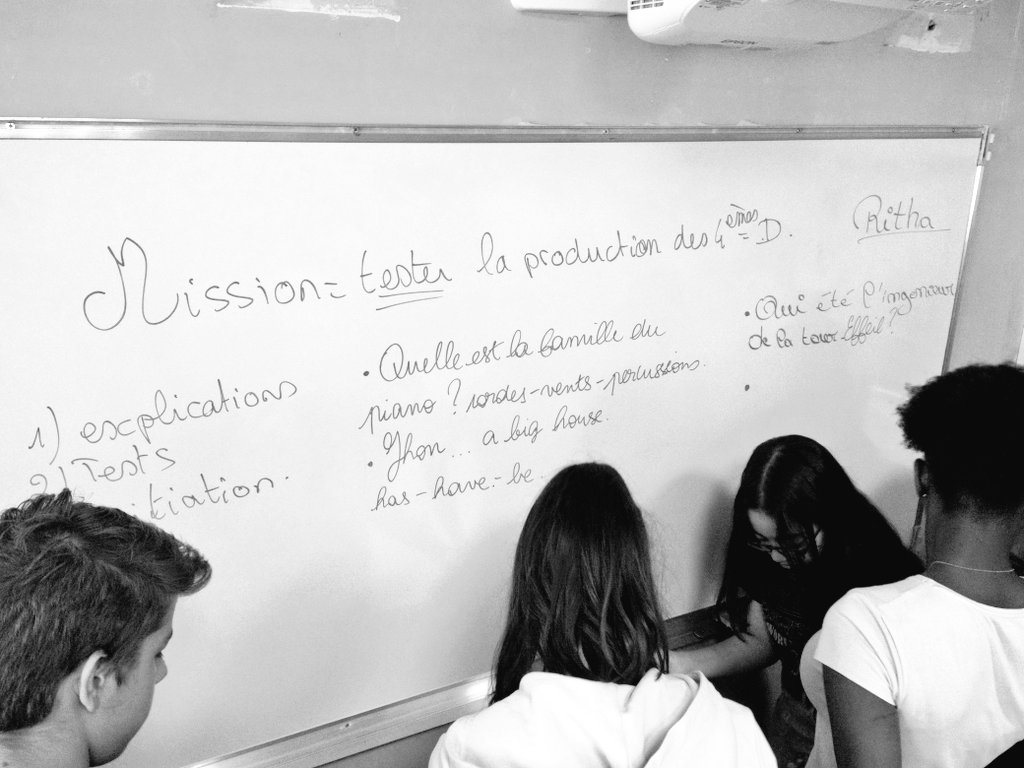 Mission = tester la production des 4èmes D.
Ritha
1) explications
2) Tests
itiation.
• Quelle est la famille du
piano ? cordes-vents-percussions.
• Jhon... a big house.
has-have-be.
• Qui été l'ingenieur
de la tour Effeil ?
•